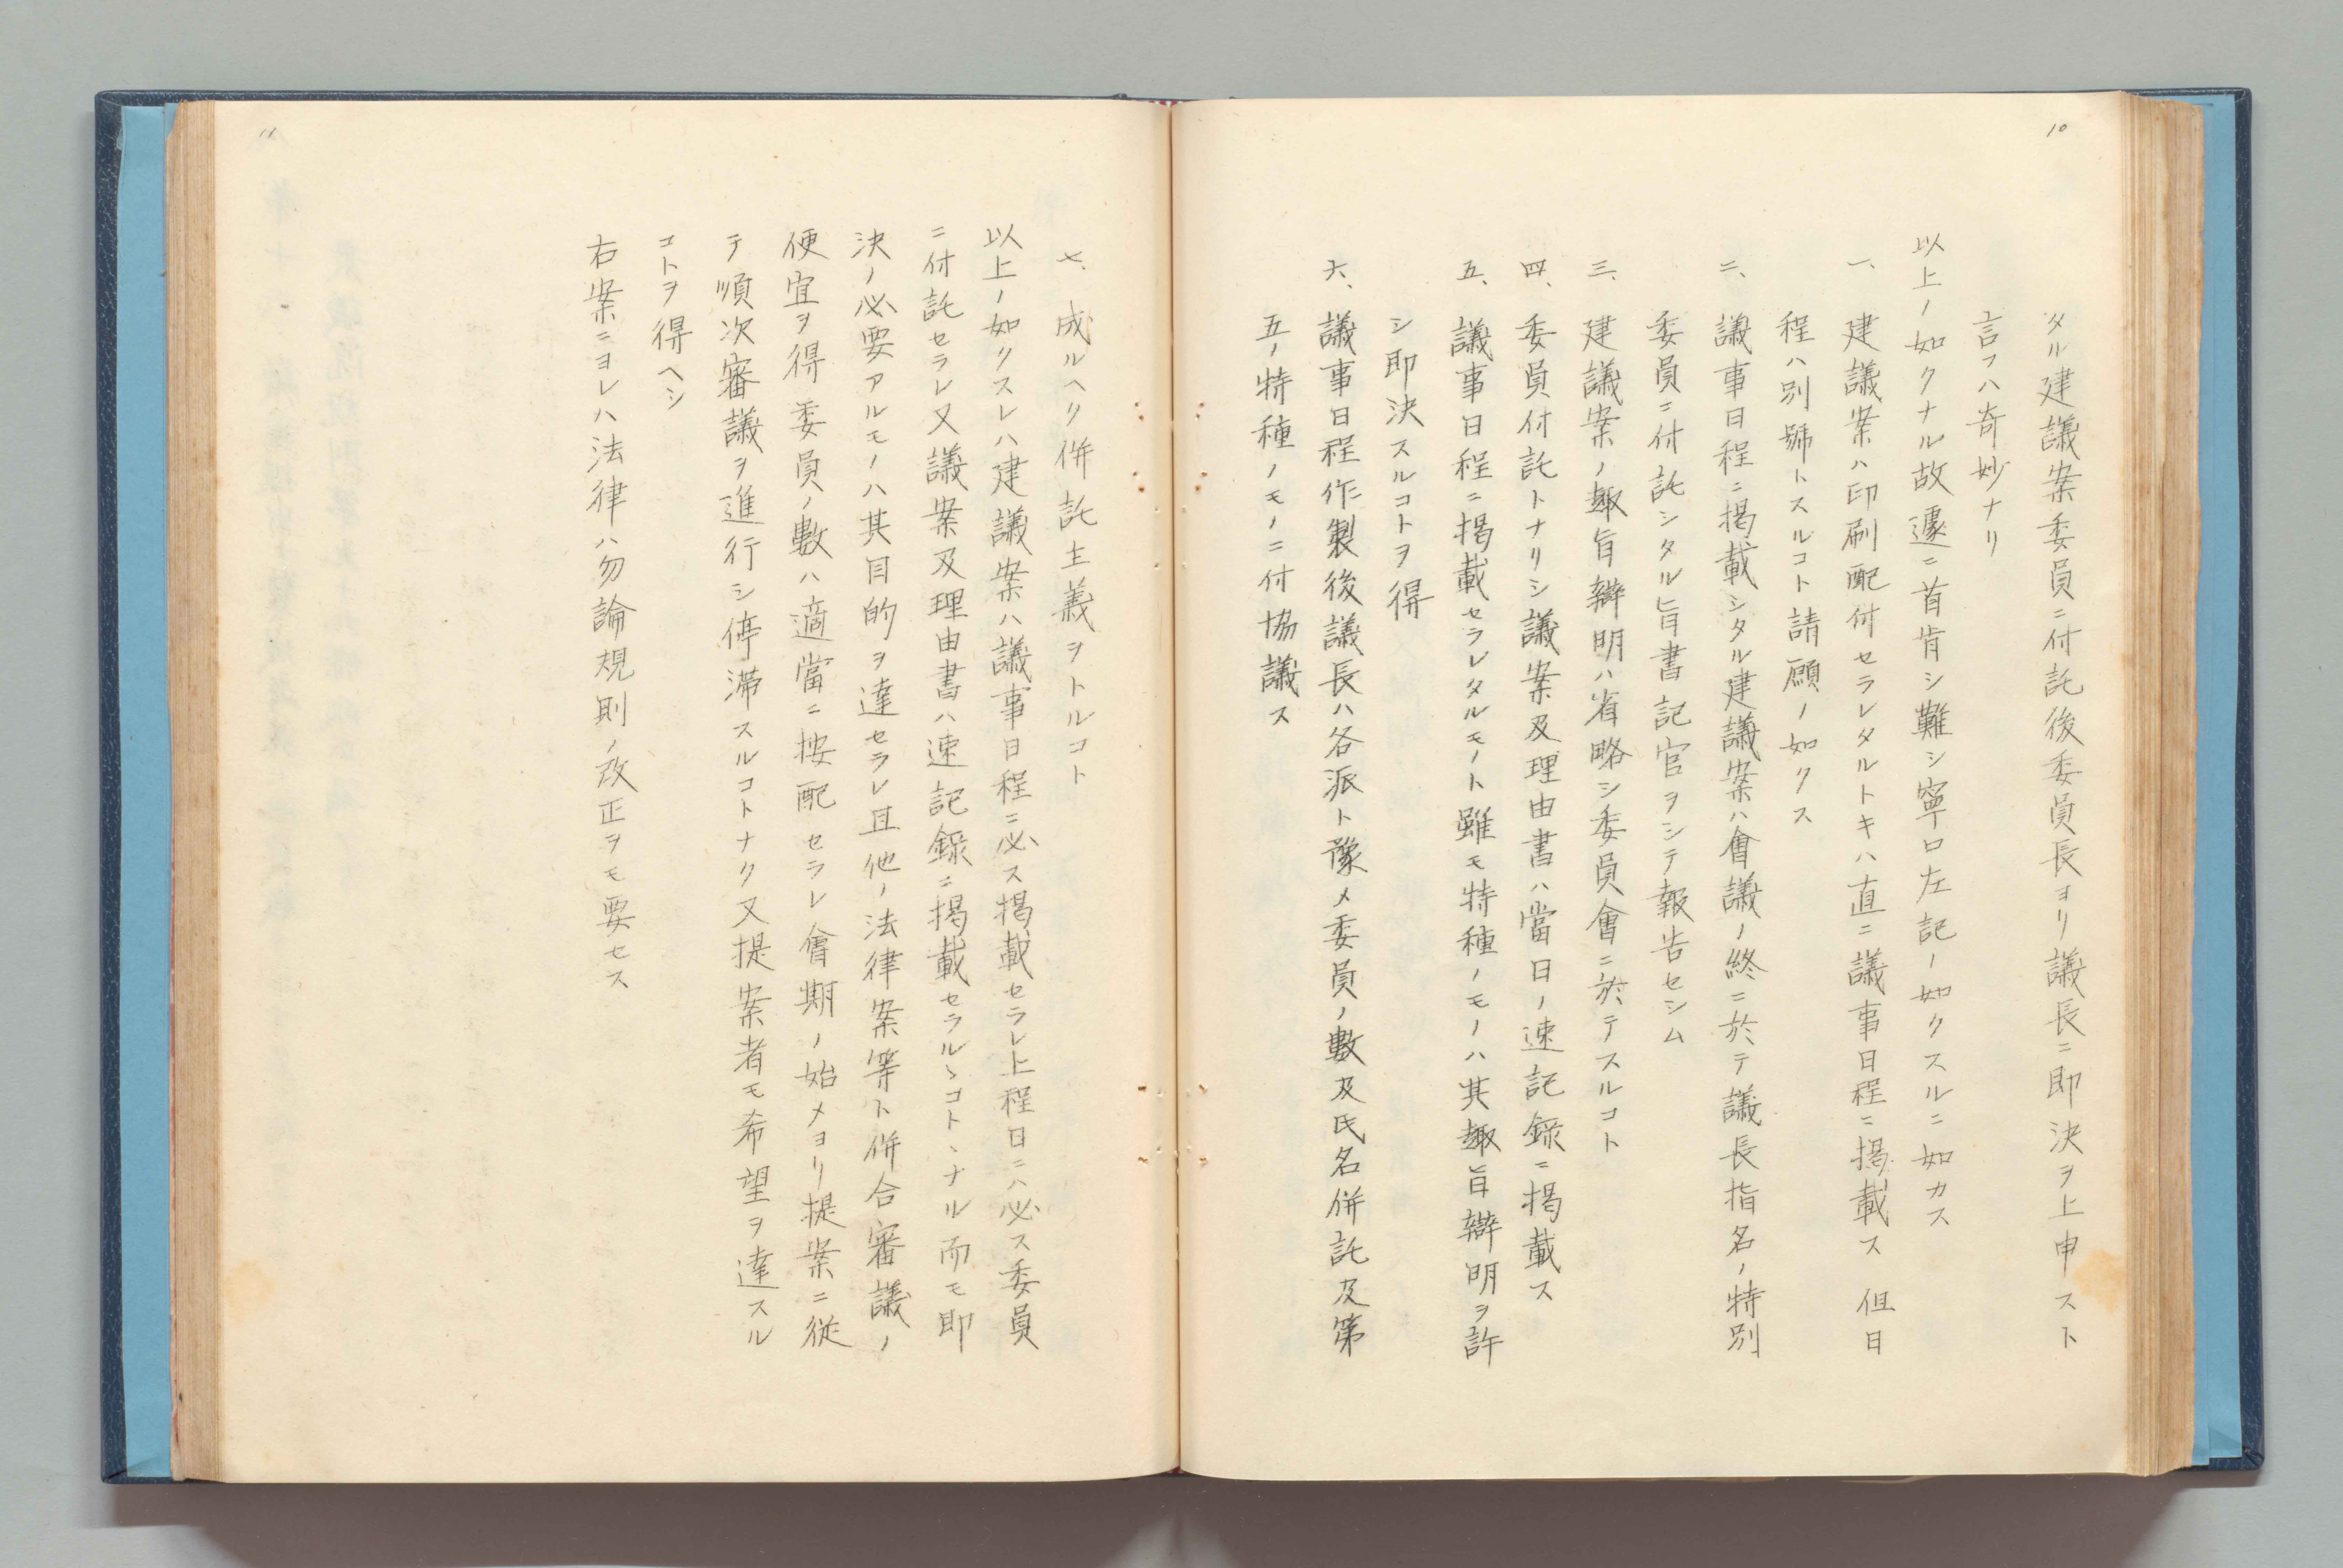 10
タル建議案委員ニ付託後委員長ヨリ議長ニ即決ヲ上申スト
言フハ奇妙ナリ
以上ノ如クナル故遽ニ首肯シ難シ寧ロ左記ノ如クスルニ如カス
一、建議案ハ印刷配付セラレタルトキハ直ニ議事日程ニ掲載ス 但日
程ハ別號トスルコト請願ノ如クス
二、議事日程ニ掲載シタル建議案ハ會議ノ終ニ於テ議長指名ノ特別
委員ニ付託シタル旨書記官ヲシテ報告セシム
三、建議案ノ趣旨辯明ハ省略シ委員會ニ於テスルコト
四、委員付託トナリシ議案及理由書ハ當日ノ速記録ニ掲載ス
五、議事日程ニ掲載セラレタルモノト雖モ特種ノモノハ其趣旨辯明ヲ許
シ即決スルコトヲ得
六、議事日程作製後議長ハ各派ト豫メ委員ノ數及氏名併託及第
五ノ特種ノモノニ付協議ス
11
七、成ルヘク併託主義ヲトルコト
以上ノ如クスレハ建議案ハ議事日程ニ必ス掲載セラレ上程日ニハ必ス委員
ニ付託セラレ又議案及理由書ハ速記録ニ掲載セラルヽコトヽナル而モ即
決ノ必要アルモノハ其目的ヲ達セラレ且他ノ法律案等ト併合審議ノ
便宜ヲ得委員ノ數ハ適當ニ按配セラレ會期ノ始メヨリ提案ニ從
テ順次審議ヲ進行シ停滯スルコトナク又提案者モ希望ヲ達スル
コトヲ得ヘシ
右案ニヨレハ法律ハ勿論規則ノ改正ヲモ要セス